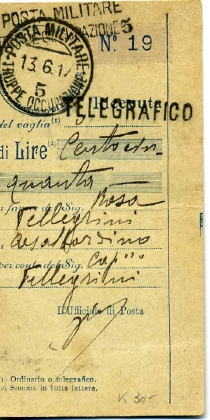 POSTA MILITARE
AZIONE 5
POSTA MILITARE
N° 19
13.6.17
5
TRUPPE
Ricevuta
TELEGRAFICO
del vaglia (1)
di Lire (2) Centocin-
quanta
Rosa
Pellegrini
per conto del Sig. Cap no
Pellegrini
L'Ufficiale di Posta
(1) Ordinario o telegrafico.
(2) Somma in tutte lettere.